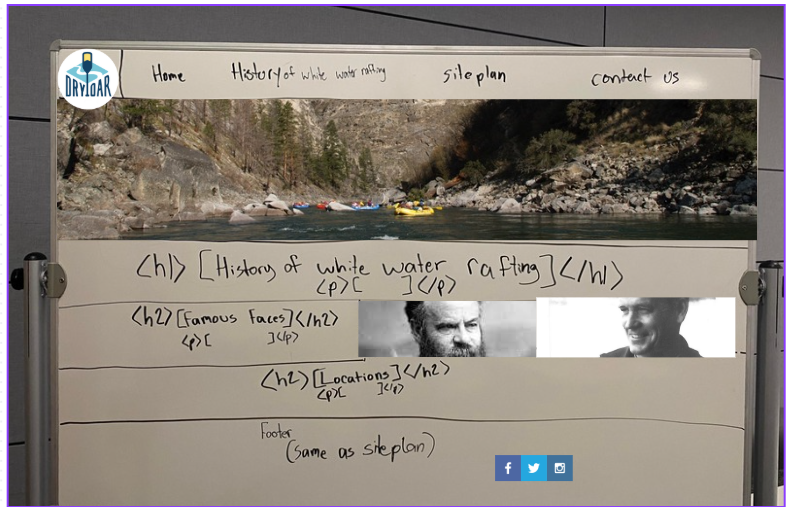 DRYOAR
Home History of white water rafting site plan contact us
<h1>[History of white water rafting]</h1>
<p>[ ]</p>
<h2>[Famous Faces]</h2>
<p>[ ]</p>
<h2>[Locations]</h2>
<p>[ ]</p>
Footer
(same as site plan)